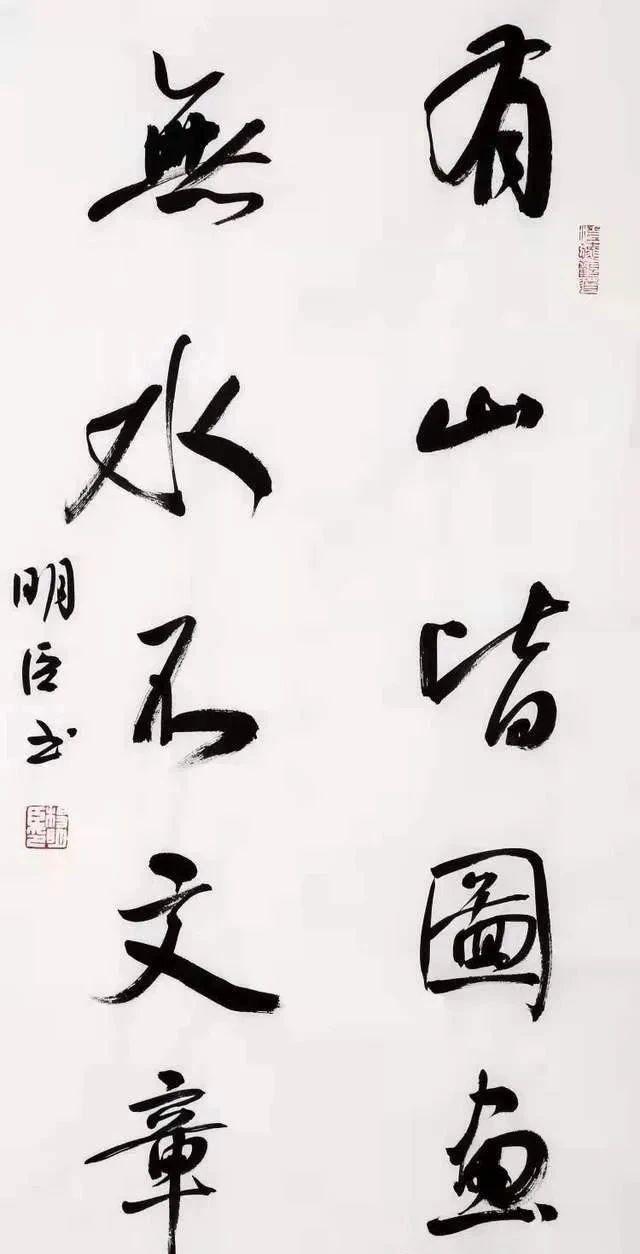 有山皆圖畫
無水不文章
明臣书